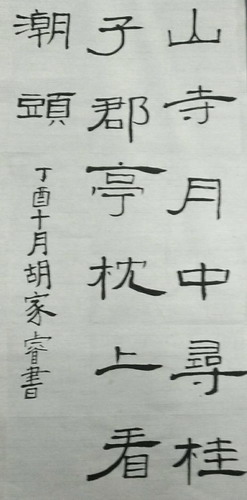 山寺月中尋桂
子郡亭枕上看
潮頭
丁酉十月胡家睿書